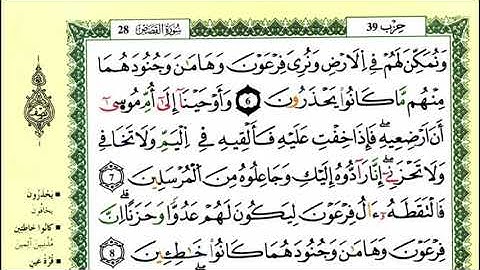 حِزْب 39
سُورَةُ القَصَصِ 28
وَنُمَكِّنَ لَهُمْ فِي ٱلْأَرْضِ وَنُرِيَ فِرْعَوْنَ وَهَٰمَٰنَ وَجُنُودَهُمَا
مِنْهُم مَّا كَانُوا۟ يَحْذَرُونَ 6 وَأَوْحَيْنَآ إِلَىٰٓ أُمِّ مُوسَىٰٓ
أَنْ أَرْضِعِيهِ ۖ فَإِذَا خِفْتِ عَلَيْهِ فَأَلْقِيهِ فِي ٱلْيَمِّ وَلَا تَخَافِي
وَلَا تَحْزَنِيٓ ۖ إِنَّا رَآدُّوهُ إِلَيْكِ وَجَاعِلُوهُ مِنَ ٱلْمُرْسَلِينَ 7
فَٱلْتَقَطَهُۥٓ ءَالُ فِرْعَوْنَ لِيَكُونَ لَهُمْ عَدُوًّا وَحَزَنًا ۗ إِنَّ
فِرْعَوْنَ وَهَٰمَٰنَ وَجُنُودَهُمَا كَانُوا۟ خَٰطِـِٔينَ 8
يَحْذَرُونَ
يخافون
كانوا خاطئين
مُذنبين آثمين
قُرّةُ عين